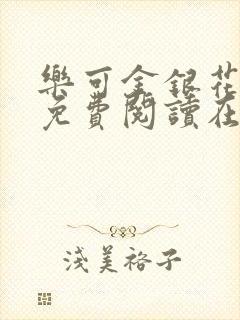 樂可金銀花
免費閱讀在
淺美裕子